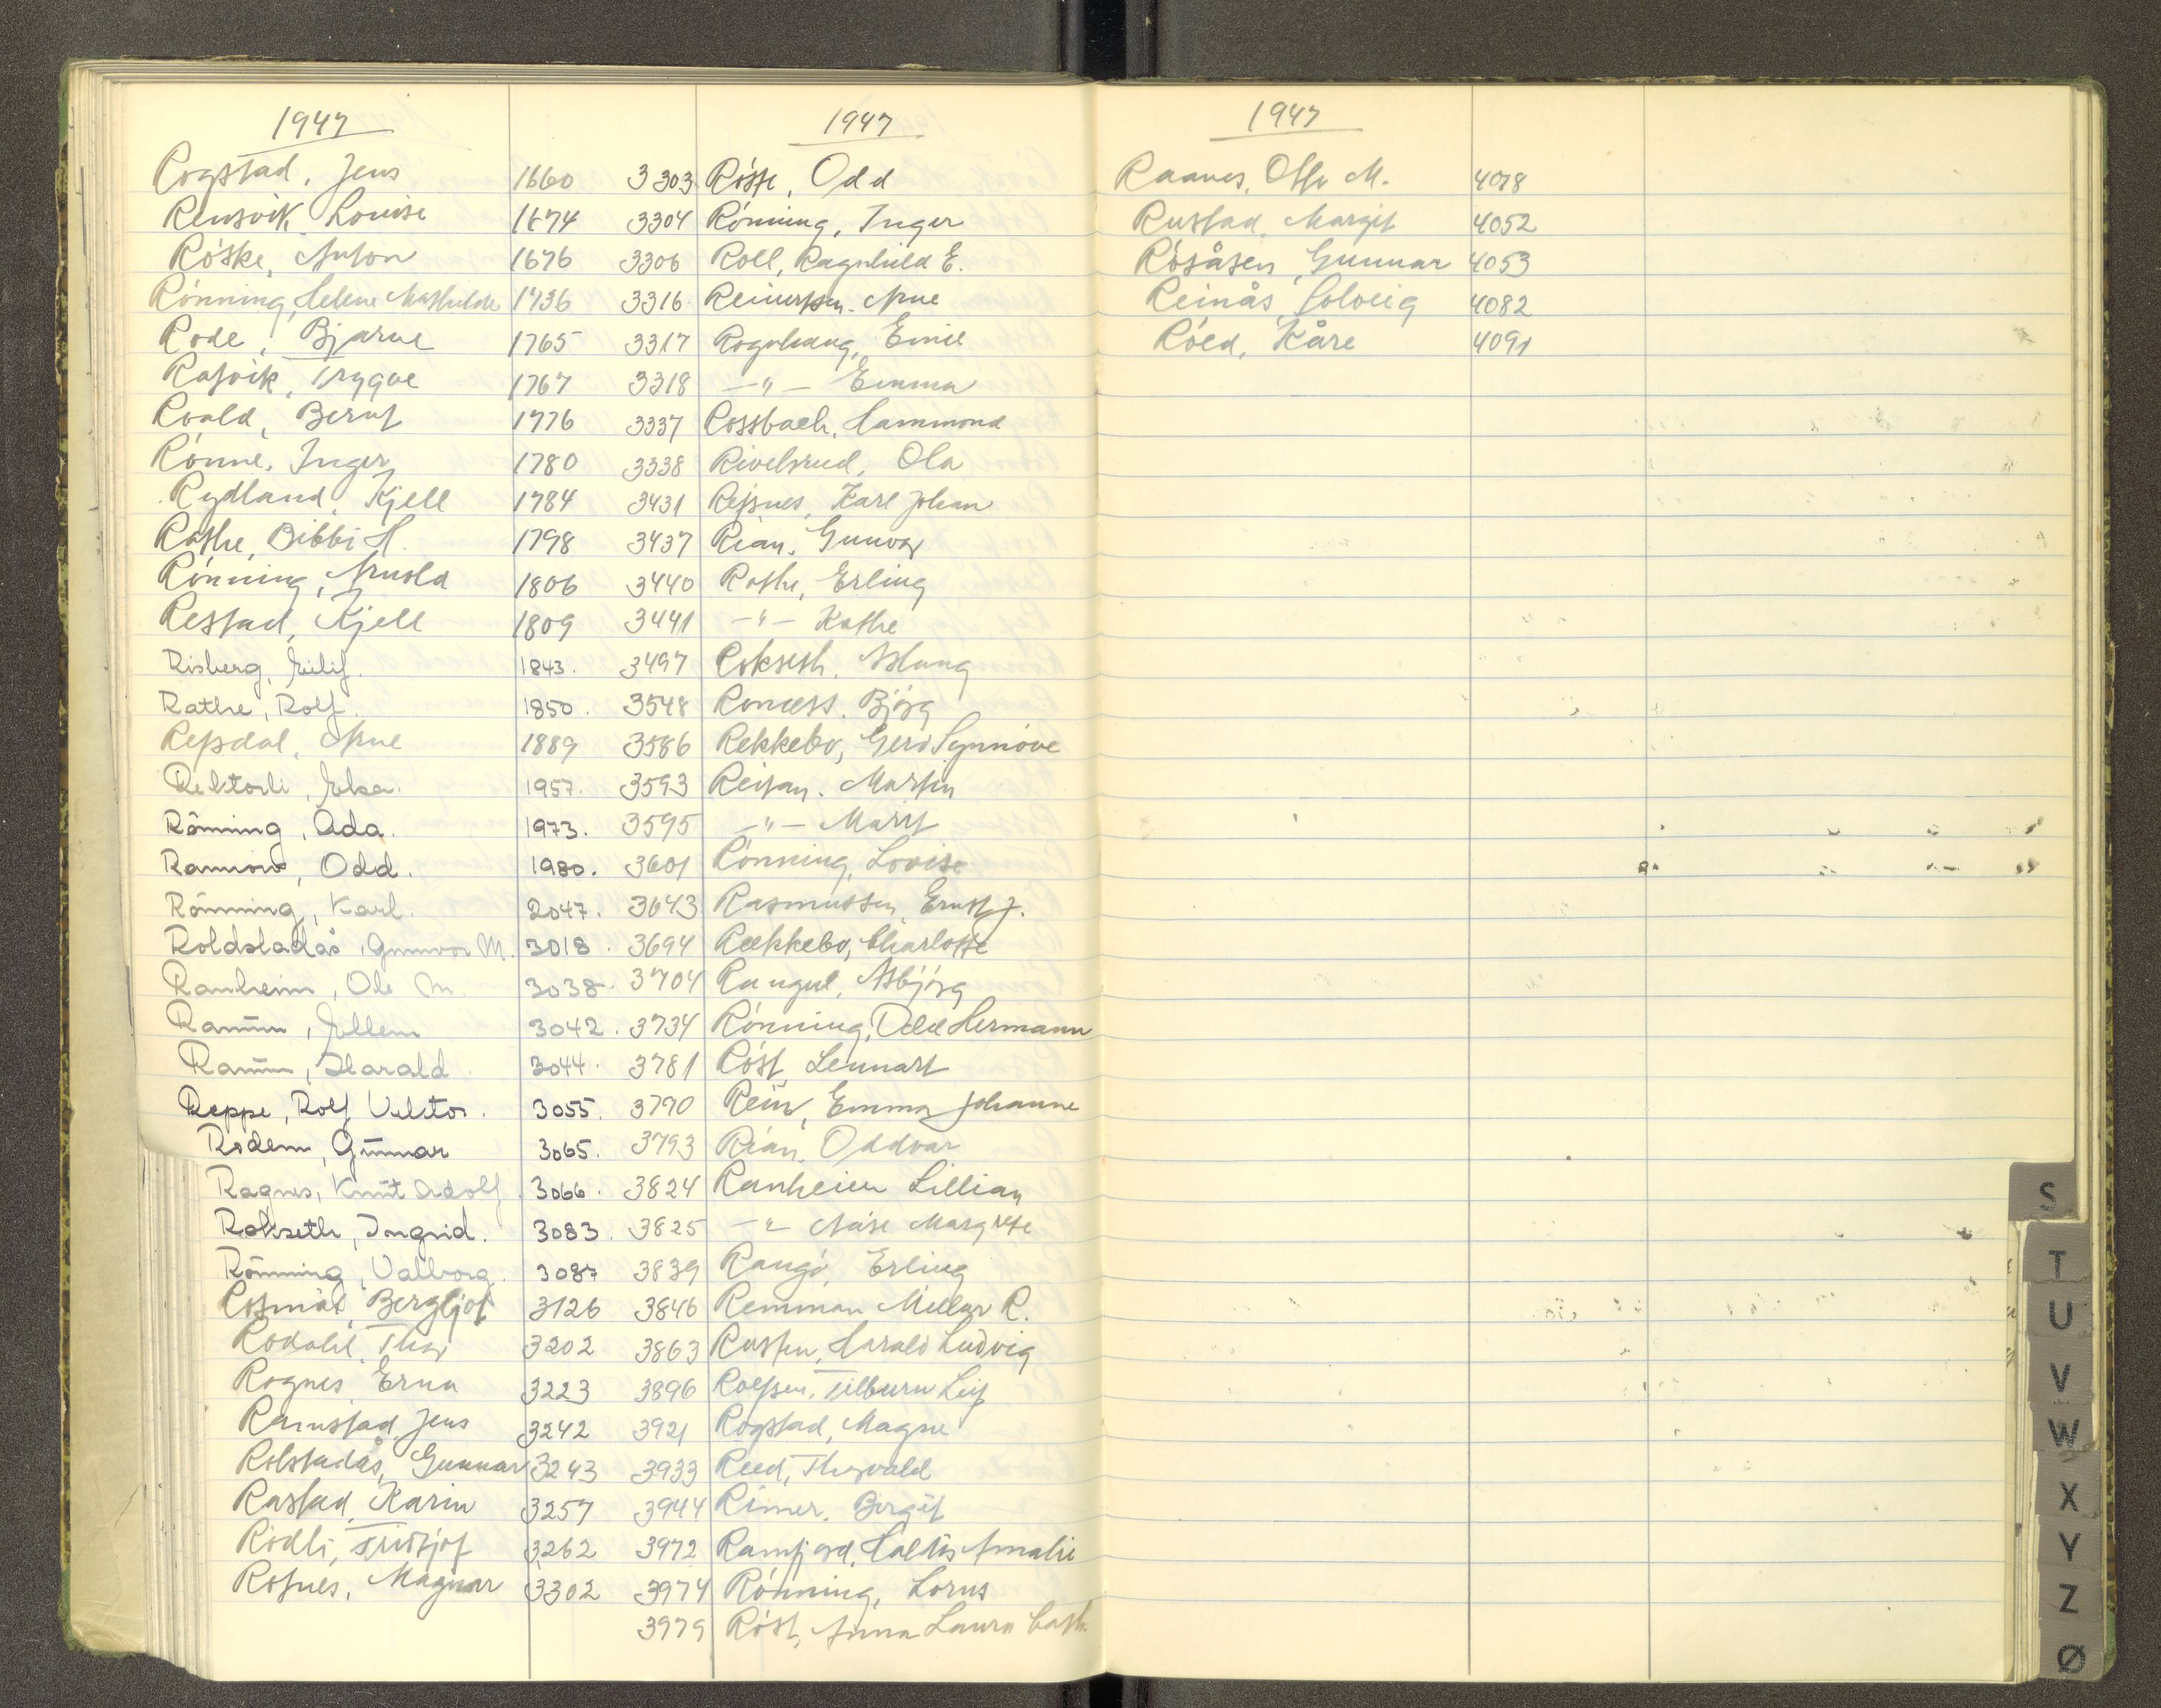 1947
Rogstad, Jens 1660
Rensvik Louise 1674
Röske, Anton 1676
Rönning, Helene Mathilde 1736
Rode, Bjarne 1765
Rasvik, Trygve 1767
Roald, Bernt 1776
Rönne, Inger 1780
Rydland, Kjell 1784
Rathe, Bibbi H. 1798
Rönning, Arnold 1806
Restad, Kjell 1809
Risberg, Eilif. 1843.
Rathe, Rolf. 1850.
Repsdal, Arne 1889
Rektorli, Elsa. 1957.
Rönning, Ada. 1973.
Odd. 1980.
Rönning, Karl. 2047.
Roldstadås, Gunvor M. 3018.
Ranheim, Ole M. 3038.
Ramm, Ellen 3042.
Ramm, Harald. 3044.
Reppe, Rolf Viktor. 3055.
Rodem, Gunnar 3065.
Ragnes, Knut Adolf 3066.
Rokseth, Ingrid. 3083.
Rönning, Valborg. 3087
Rosmäl, Bergljot 3126
Rodahl, Thor 3202
Rognes, Erna 3223
Ramstad, Jens 3242
Rolstadås, Gunnar 3243
Rastad, Karin 3257
Rödli, Fridtjof 3262
Rosnes, Magnar 3302
1947
3303 Röste, Odd
3304 Rönning, Inger
3306 Roll, Ragnhild E.
3316 Reinertsen. Arne
3317 Rognhaug, Emil
3318 —"— Emma
3337 Rossbach, Hammond
3338 Rivelsrud, Ola
3431 Repsnes, Karl Johan
3437 Rian, Gunvor
3440 Rathe, Erling
3441 —"— Kathe
3497 Rokseth, Aslaug
3548 Bjørg
3586 Rekkebo, Gerd Synnöve
3593 Reitan. Martin
3595 —"— Marit
3601 Rönning, Lovise
3643 Rasmussen, Ernst J.
3694 Rekkebo, Charlotte
3704 Rangul, Asbjörg
3734 Rönning, Odd Hermann
3781 Röst, Lennart
3790 Rein, Emma Johanne
3793 Rian, Oddvar
3824 Ranheim Lillian
3825 —"— Åse Margrete
3839 Rangö, Erling
3846 Remman Millar R.
3863 Rusten, Harald Ludvig
3896 Leif
3921 Rogstad, Magne
3933 Reed, Thorvald
3944 Rimer, Bergit
3972 Ramfjord, Haldis Amalie
3974 Rönning, Lorns
3979 Röst, Anna Laura Cath.
1947
Raanes, Otto M. 4018
Rustad, Margit 4052
Rösåsen, Gunnar 4053
Reinås, Solveig 4082
Röed, Kåre 4091
S
T
U
V
W
X
Y
Z
Ø